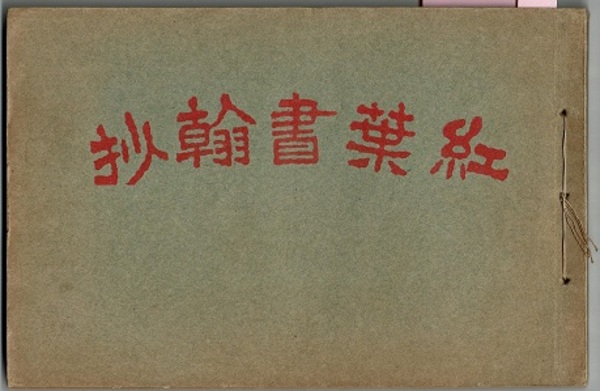 紅葉書翰抄